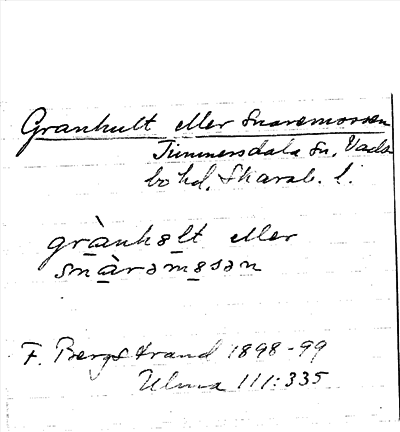 Granhult eller Snaremossen
Timmersdala sn, Vads
bo hd, Skarab. l.
grànho̲lt eller
snàrəmo̲sən
F. Bergstrand 1898-99
Ulma 111:335